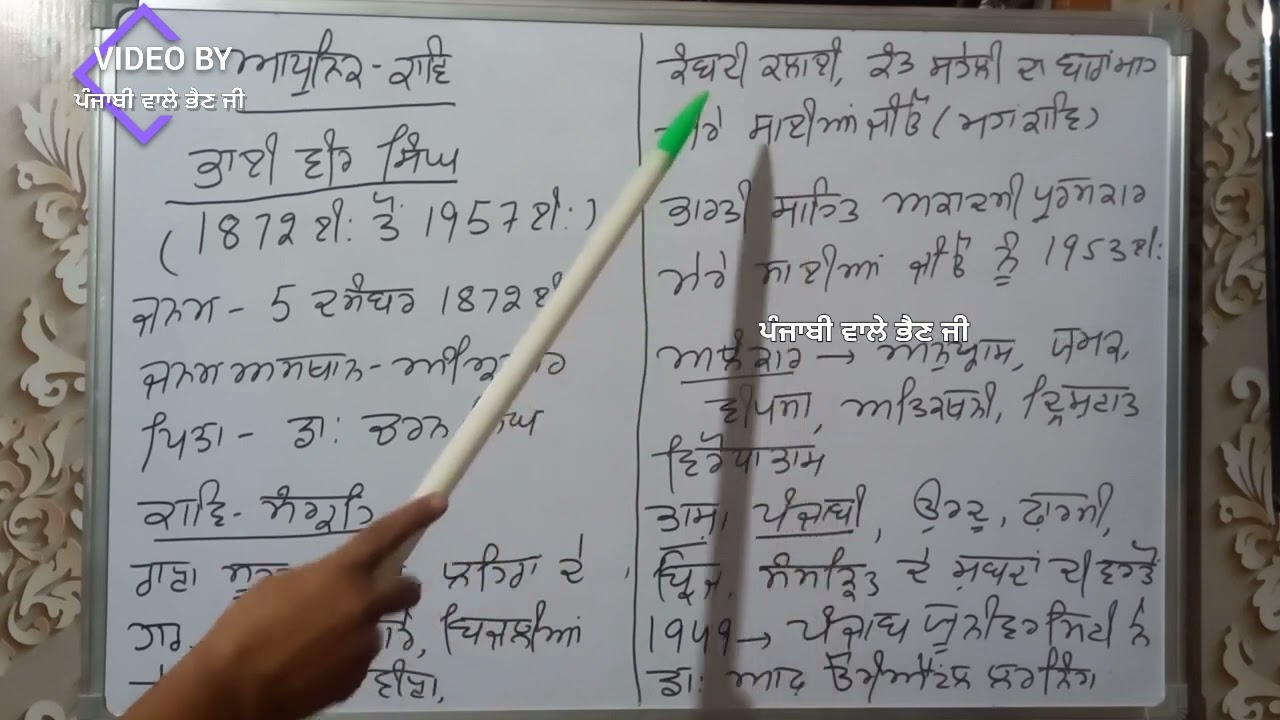 VIDEO BY
ਪੰਜਾਬੀ ਵਾਲੇ ਭੈਣ ਜੀ
ਆਧੁਨਿਕ - ਕਾਵਿ
ਭਾਈ ਵੀਰ ਸਿੰਘ
(1872 ਈ: ਤੋਂ 1957 ਈ:)
ਜਨਮ - 5 ਦਸੰਬਰ 1872 ਈ
ਜਨਮ ਅਸਥਾਨ - ਅੰਮ੍ਰਿਤਸਰ
ਪਿਤਾ - ਡਾ: ਚਰਨ ਸਿੰਘ
ਕਾਵਿ - ਸੰਗ੍ਰਹਿ
ਰਾਣਾ ਲਹਿਰਾਂ ਦੇ
ਹਾਰ, ਬਿਜਲੀਆਂ
ਵੀਣਾ,
ਕੰਬਦੀ ਕਲਾਈ, ਕੰਤ ਮਹੇਲੀ ਦਾ ਬਾਰਾਂਮਾਹ
ਮੇਰੇ ਸਾਈਆਂ ਜੀਓ (ਮਹਾਂਕਾਵਿ)
ਭਾਰਤੀ ਸਾਹਿਤ ਅਕਾਦਮੀ ਪੁਰਸਕਾਰ
ਮੇਰੇ ਸਾਈਆਂ ਜੀਓ ਨੂੰ 1953 ਈ:
ਪੰਜਾਬੀ ਵਾਲੇ ਭੈਣ ਜੀ
ਅਲੰਕਾਰ → ਅਨੁਪ੍ਰਾਸ, ਯਮਕ,
ਅਤਿਕਥਨੀ, ਦ੍ਰਿਸ਼ਟਾਂਤ
ਵਿਰੋਧਾਭਾਸ
ਭਾਸ਼ਾ ਪੰਜਾਬੀ, ਉਰਦੂ, ਫ਼ਾਰਸੀ,
ਬ੍ਰਿਜ, ਸੰਸਕ੍ਰਿਤ ਦੇ ਸ਼ਬਦਾਂ ਦੀ ਵਰਤੋਂ
1949 → ਪੰਜਾਬ ਯੂਨੀਵਰਸਿਟੀ ਨੇ
ਡਾ: ਆਫ਼ ਓਰੀਐਂਟਲ ਲਰਨਿੰਗ